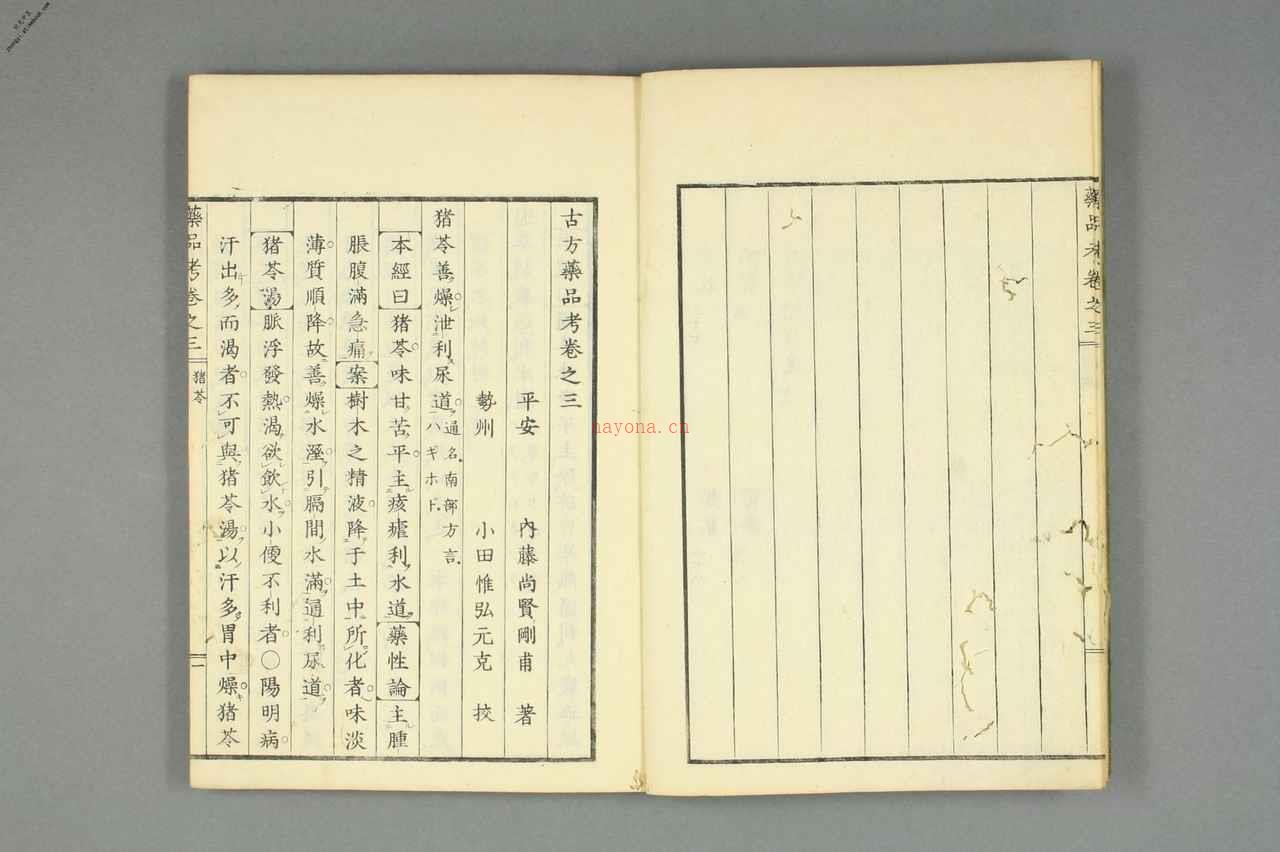 藥品考卷之三
古方藥品考卷之三
平安 內藤尚賢剛甫 著
勢州 小田惟弘元克 挍
猪苓善燥泄利尿道 通名南部方言ハギホド
本經曰猪苓味甘苦平主痎瘧利水道藥性論主腫
脹腹滿急痛案樹木之精液降于土中所化者味淡
薄質順降故善燥水溼引膈間水滿通利尿道
猪苓湯脈浮發熱渴欲飲水小便不利者〇陽明病
汗出多而渴者不可與猪苓湯以汗多胃中燥猪苓
藥品考卷之三 猪苓 一
nayona.cn